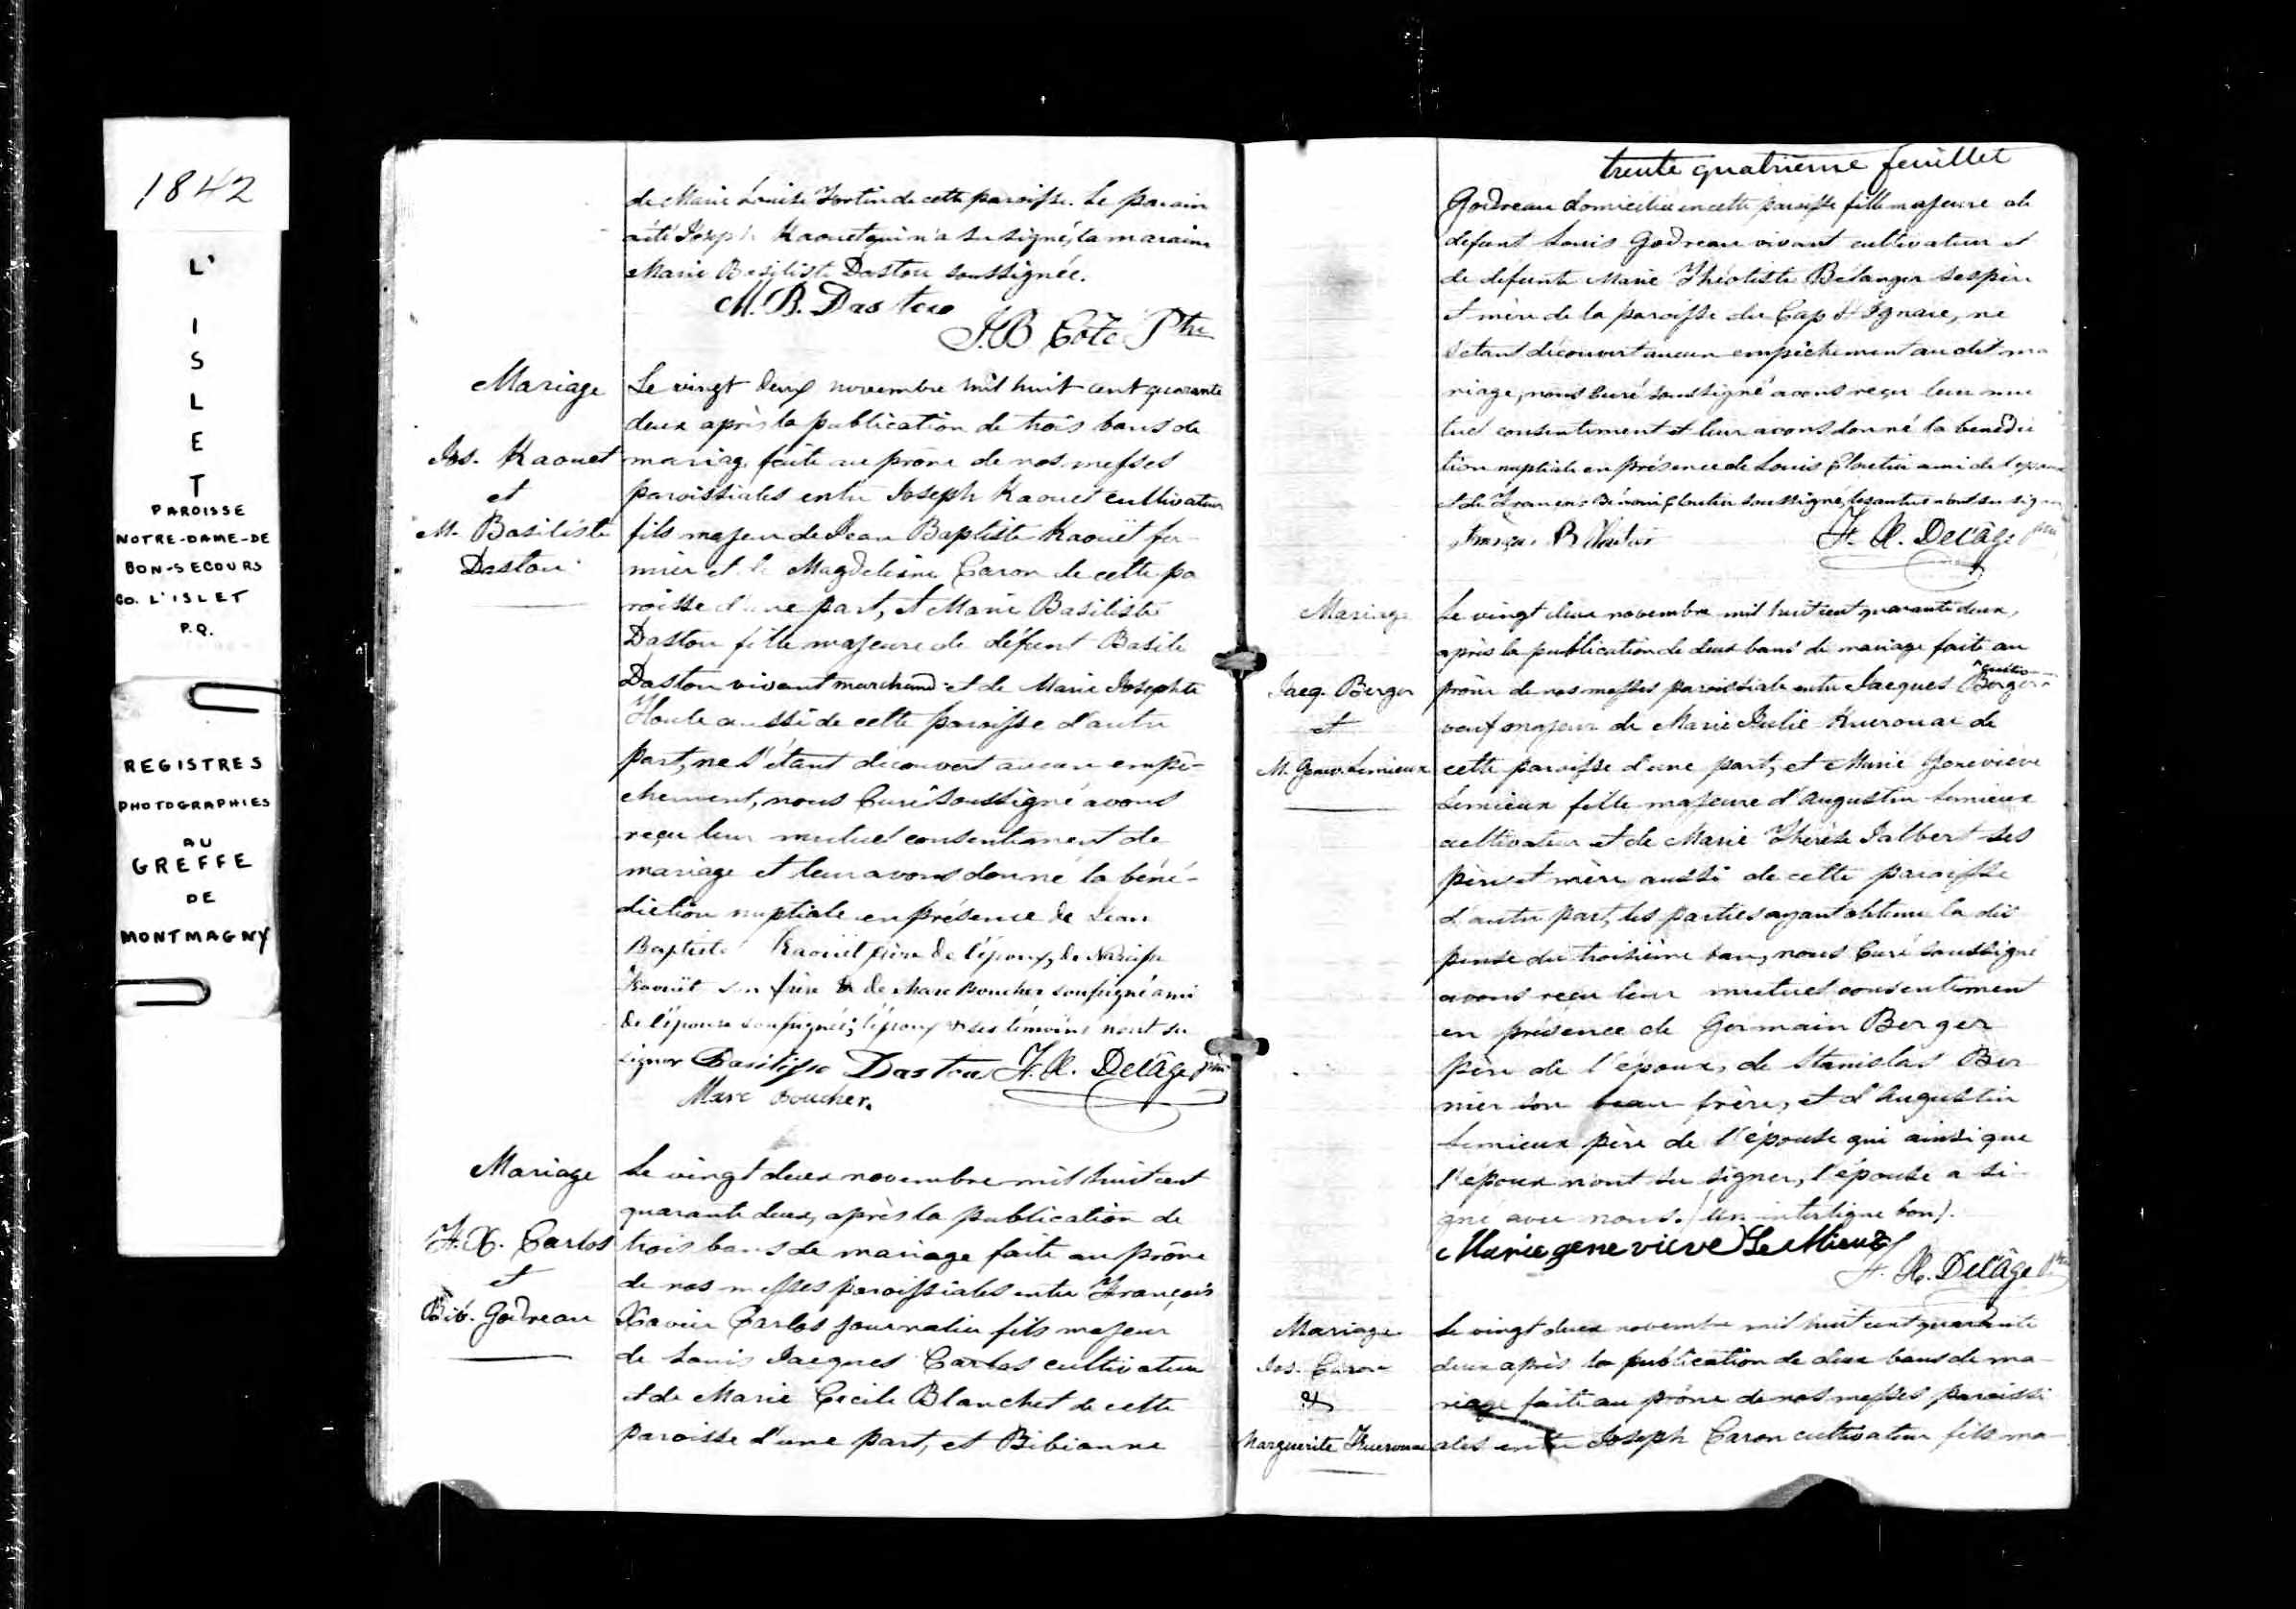 1842
L'
I
S
L
E
T
PAROISSE
NOTRE-DAME-DE
BON-SECOURS
CO. L'ISLET
P.Q.
REGISTRES
PHOTOGRAPHIES
AU
GREFFE
DE
MONTMAGNY
de Marie Louise Fortin de cette paroisse. Le parain
a été Joseph Kaouet qui n'a su signer, la maraine
Marie Basiliste Dastou soussignée.
M. B. Dastou
J.B. Coté Ptre
Mariage
Jos. Kaouet
et
M. Basiliste
Dastou
Le vingt deux novembre mil huit cent quarante
deux après la publication de trois bans de
mariage faite au prône de nos messes
paroissiales entre Joseph Kaouet cultivateur
fils majeur de Jean Baptiste Kaouët fer-
mier et de Magdeleine Caron de cette pa
roisse d'une part, et Marie Basiliste
Dastou fille majeure de défunt Basile
Dastou vivant marchand et de Marie Josephte
aussi de cette paroisse d'autre
part, ne s'étant découvert aucun empê-
chement, nous Curé soussigné avons
reçu leur mutuel consentement de
mariage et leur avons donné la béné-
diction nuptiale en présence de Jean
Baptiste Kaouët père de l'époux, de Narcisse
Kaouët son frère & de Marc Boucher soussigné ami
de l'épouse soussignée; l'époux & ses témoins n'ont su
signer Basilisse Dastou F. X. Delâge Ptre
Marc Boucher.
Mariage
F. X. Carlos
et
Bib. Godreau
Le vingt deux novembre mil huit cent
quarante deux, après la publication de
trois bans de mariage faite au prône
de nos messes paroissiales entre François
Xavier Carlos journalier fils majeur
de Louis Jacques Carlos cultivateur
et de Marie Cecile Blanchet de cette
paroisse d'une part, et Bibianne
trente quatrième feuillet
Godreau domiciliée en cette paroisse fille majeure de
defunt Louis Godreau vivant cultivateur et
de défunte Marie Théotiste Bélanger ses père
et mère de la paroisse du Cap St Ignace, ne
s'étant découvert aucun empêchement au dit ma
riage, nous Curé soussigné avons reçu leur mu
tuel consentement et leur avons donné la bénédic
tion nuptiale en présence de Louis Cloutier ami de l'époux
et de François Cloutier soussigné, les autres n'ont su signer
François B Cloutier F. X. Delâge Ptre
Mariage
Jacq. Berger
et
M. Genev. Lemieux
Le vingt deux novembre mil huit cent quarante deux,
après la publication de deux bans de mariage faite au
prône de nos messes paroissiale entre Jacques Berger
veuf majeur de Marie Julie Kuerouac de
cette paroisse d'une part, et Marie Geneviève
Lemieux fille majeure d'Augustin Lemieux
cultivateur et de Marie Thérèse Jalbert ses
père et mère aussi de cette paroisse
d'autre part, les parties ayant obtenu la dis
pense du troisième ban, nous Curé soussigné
avons reçu leur mutuel consentement
en présence de Germain Berger
père de l'époux, de Stanislas Ber
nier son beau frère, et d'Augustin
Lemieux père de l'épouse qui ainsi que
l'époux n'ont su signer, l'épouse a si-
gné avec nous. (Un interligne bon).
Marie geneviève Le Mieux
F. X. Delâge Ptre
Mariage
Jos. Caron
&
Marguerite Kuerouac
Le vingt deux novembre mil huit cent quarante
deux après la publication de deux bans de ma-
riage faite au prône de nos messes paroissi
ales entre Joseph Caron cultivateur fils ma-